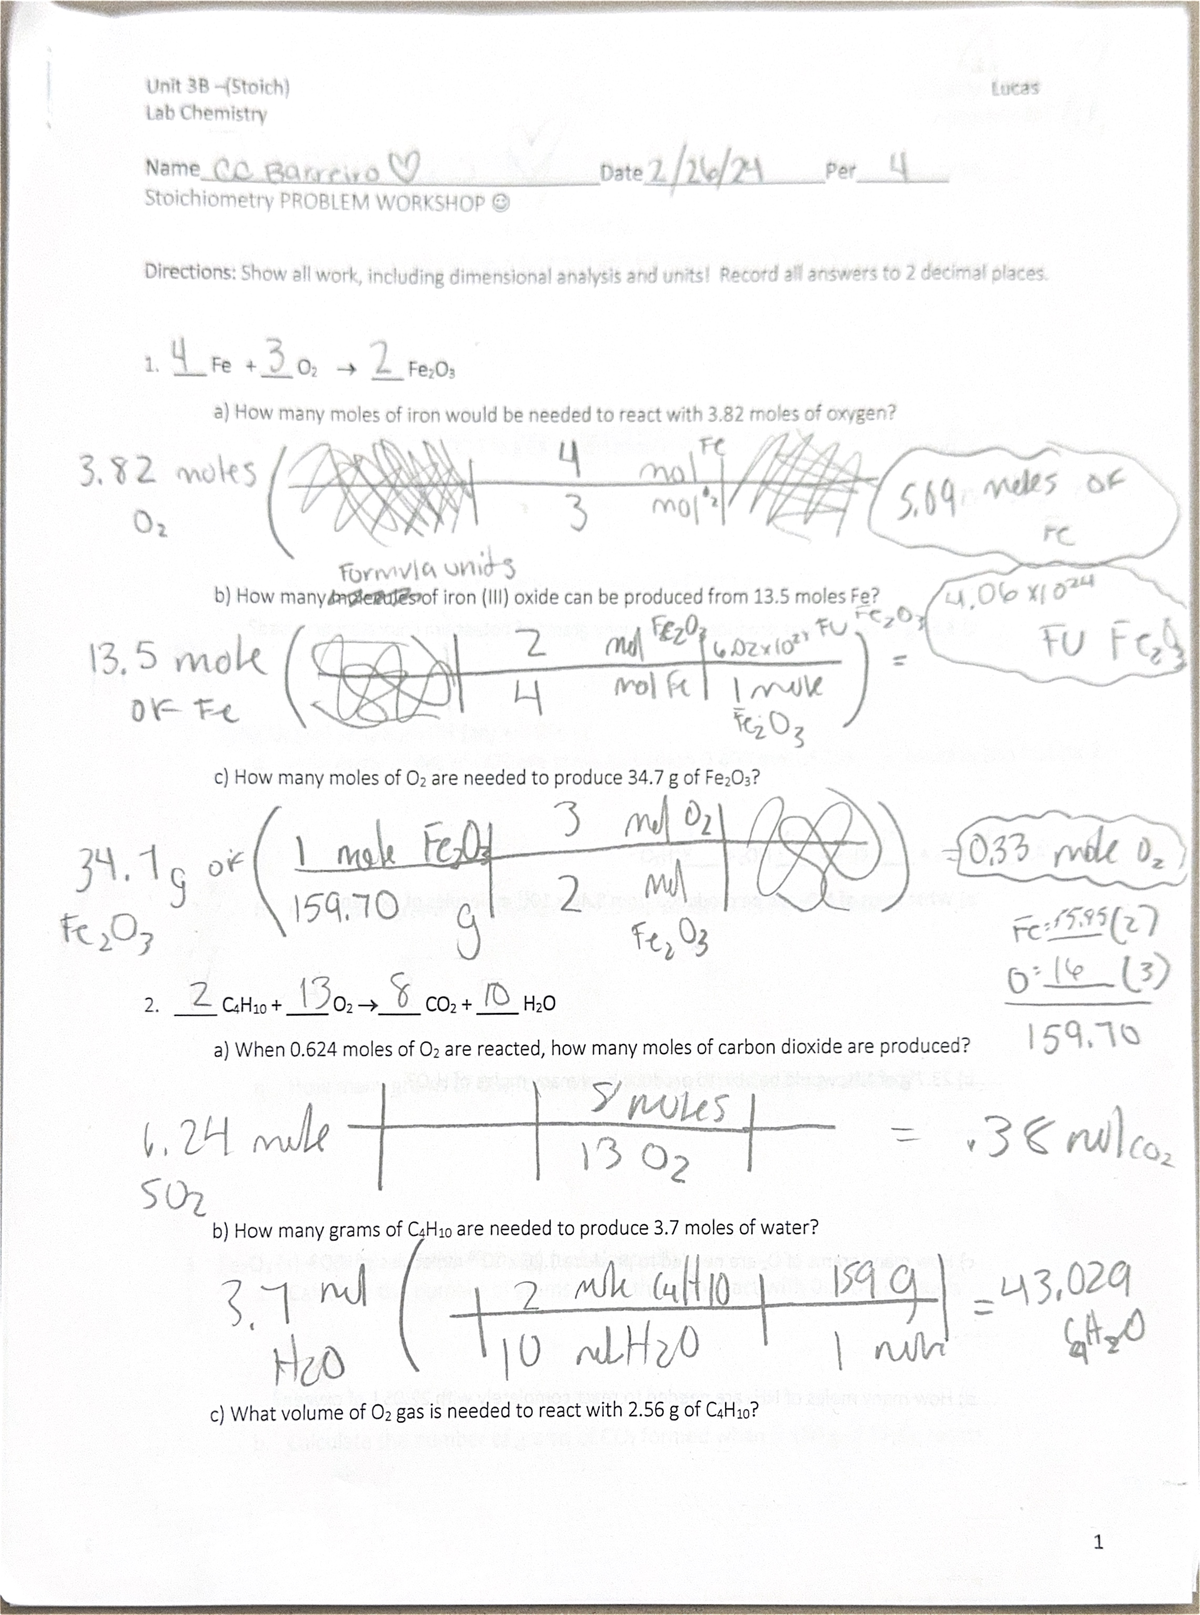 Unit 3B –(Stoich) Lucas
Lab Chemistry
Name CC Barreiro ♡ Date 2/26/24 Per 4
Stoichiometry PROBLEM WORKSHOP ☺
Directions: Show all work, including dimensional analysis and units! Record all answers to 2 decimal places.
1. 4 Fe + 3 O₂ → 2 Fe₂O₃
a) How many moles of iron would be needed to react with 3.82 moles of oxygen?
3.82 moles O₂ ( 4 mol Fe
3 mol O₂
5.09 moles of Fe
Formula units
b) How many of iron (III) oxide can be produced from 13.5 moles Fe?
13.5 mole of Fe ( 2 mol Fe₂O₃ | 6.02x10²³ FU Fe₂O₃
4 mol Fe | 1 mole Fe₂O₃ ) =
4.06 x10²⁴ FU Fe₂O₃
c) How many moles of O₂ are needed to produce 34.7 g of Fe₂O₃?
34.7g of Fe₂O₃ ( 1 mole Fe₂O₃ | 3 mol O₂
159.70 g | 2 mol Fe₂O₃ ) = 0.33 mole O₂
Fe: (2)
O: 16 (3)
159.70
2. 2 C₄H₁₀ + 13 O₂ → 8 CO₂ + 10 H₂O
a) When 0.624 moles of O₂ are reacted, how many moles of carbon dioxide are produced?
6.24 mole
8 moles
13 O₂
= .38 mol CO₂
b) How many grams of C₄H₁₀ are needed to produce 3.7 moles of water?
3.7 mol H₂O ( 2 mole C4H10 | 159 g
10 mol H₂O | 1 mole = 43.029
c) What volume of O₂ gas is needed to react with 2.56 g of C₄H₁₀?
1